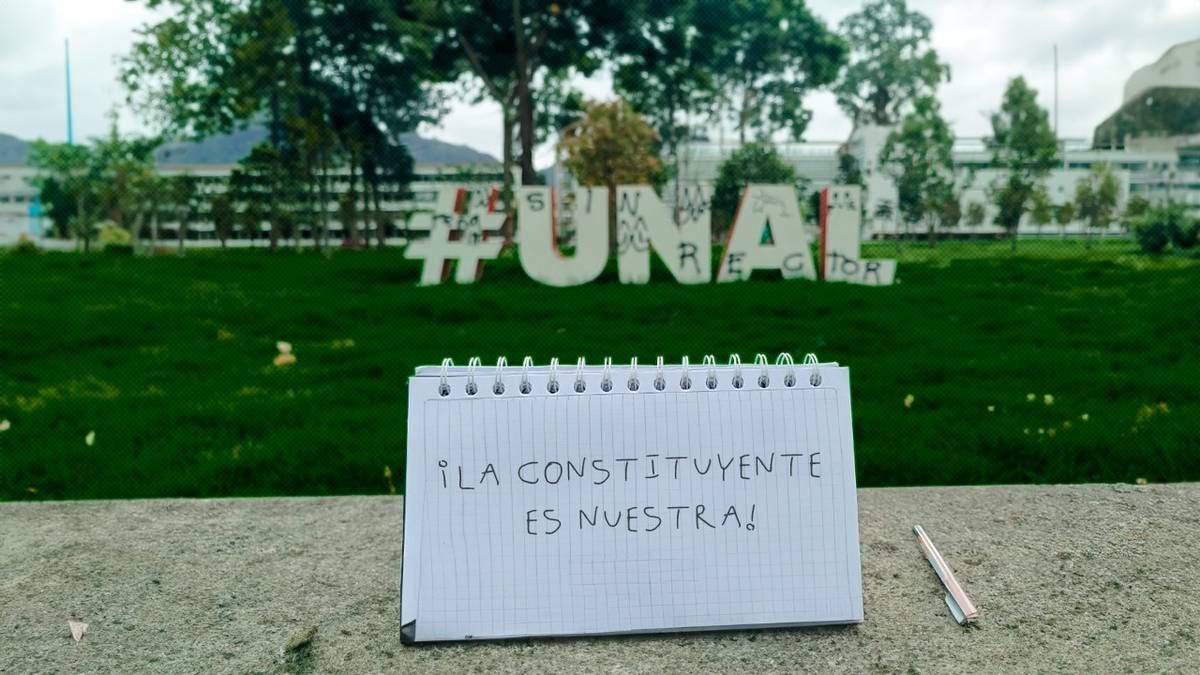 #UNAL
SIN
RECTOR
¡LA CONSTITUYENTE
ES NUESTRA!